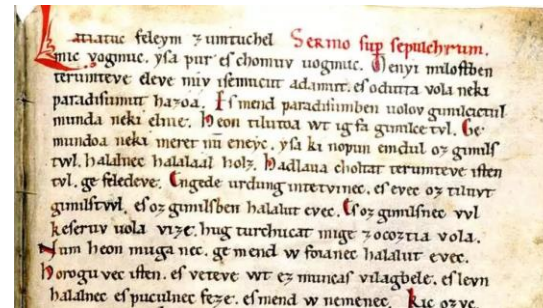 Latiatuc feleym zumtuchel Sermo sup sepulchrum.
mic vogmuc. ysa pur es chomuv uogmuc. Menyi miloſtben
terumteve eleve miv iſemucut adamut. eſ odutta vola neki
paradiſumut hazoa. Eſ mend paradiſumben uolov gimilcictul
munda neki elnie. Heon tilutoa wt ig fa gimilce tvl. Ge
mundoa neki meret nū eneyc. yſa ki nopun emdul oz gimilſ
twl. halalnec halalaal holz. Hadlaua choltat terumteve iſten
tvl. ge feledeve. Engede urdung intetvinec. eſ evec oz tiluvt
gimilſtwl. eſ oz gimilſben halalut evec. Eſ oz gimilſnec vvl
keſeruv uola vize. hug turchucat mige zocoztia vola.
Num heon muga nec. ge mend w foianec halalut evec.
Horogu vec iſten. eſ veteve wt ez muncaſ vilagbele. eſ levn
halalnec eſ puculnec feze. eſ mend w nemenec. Kic ozvc.